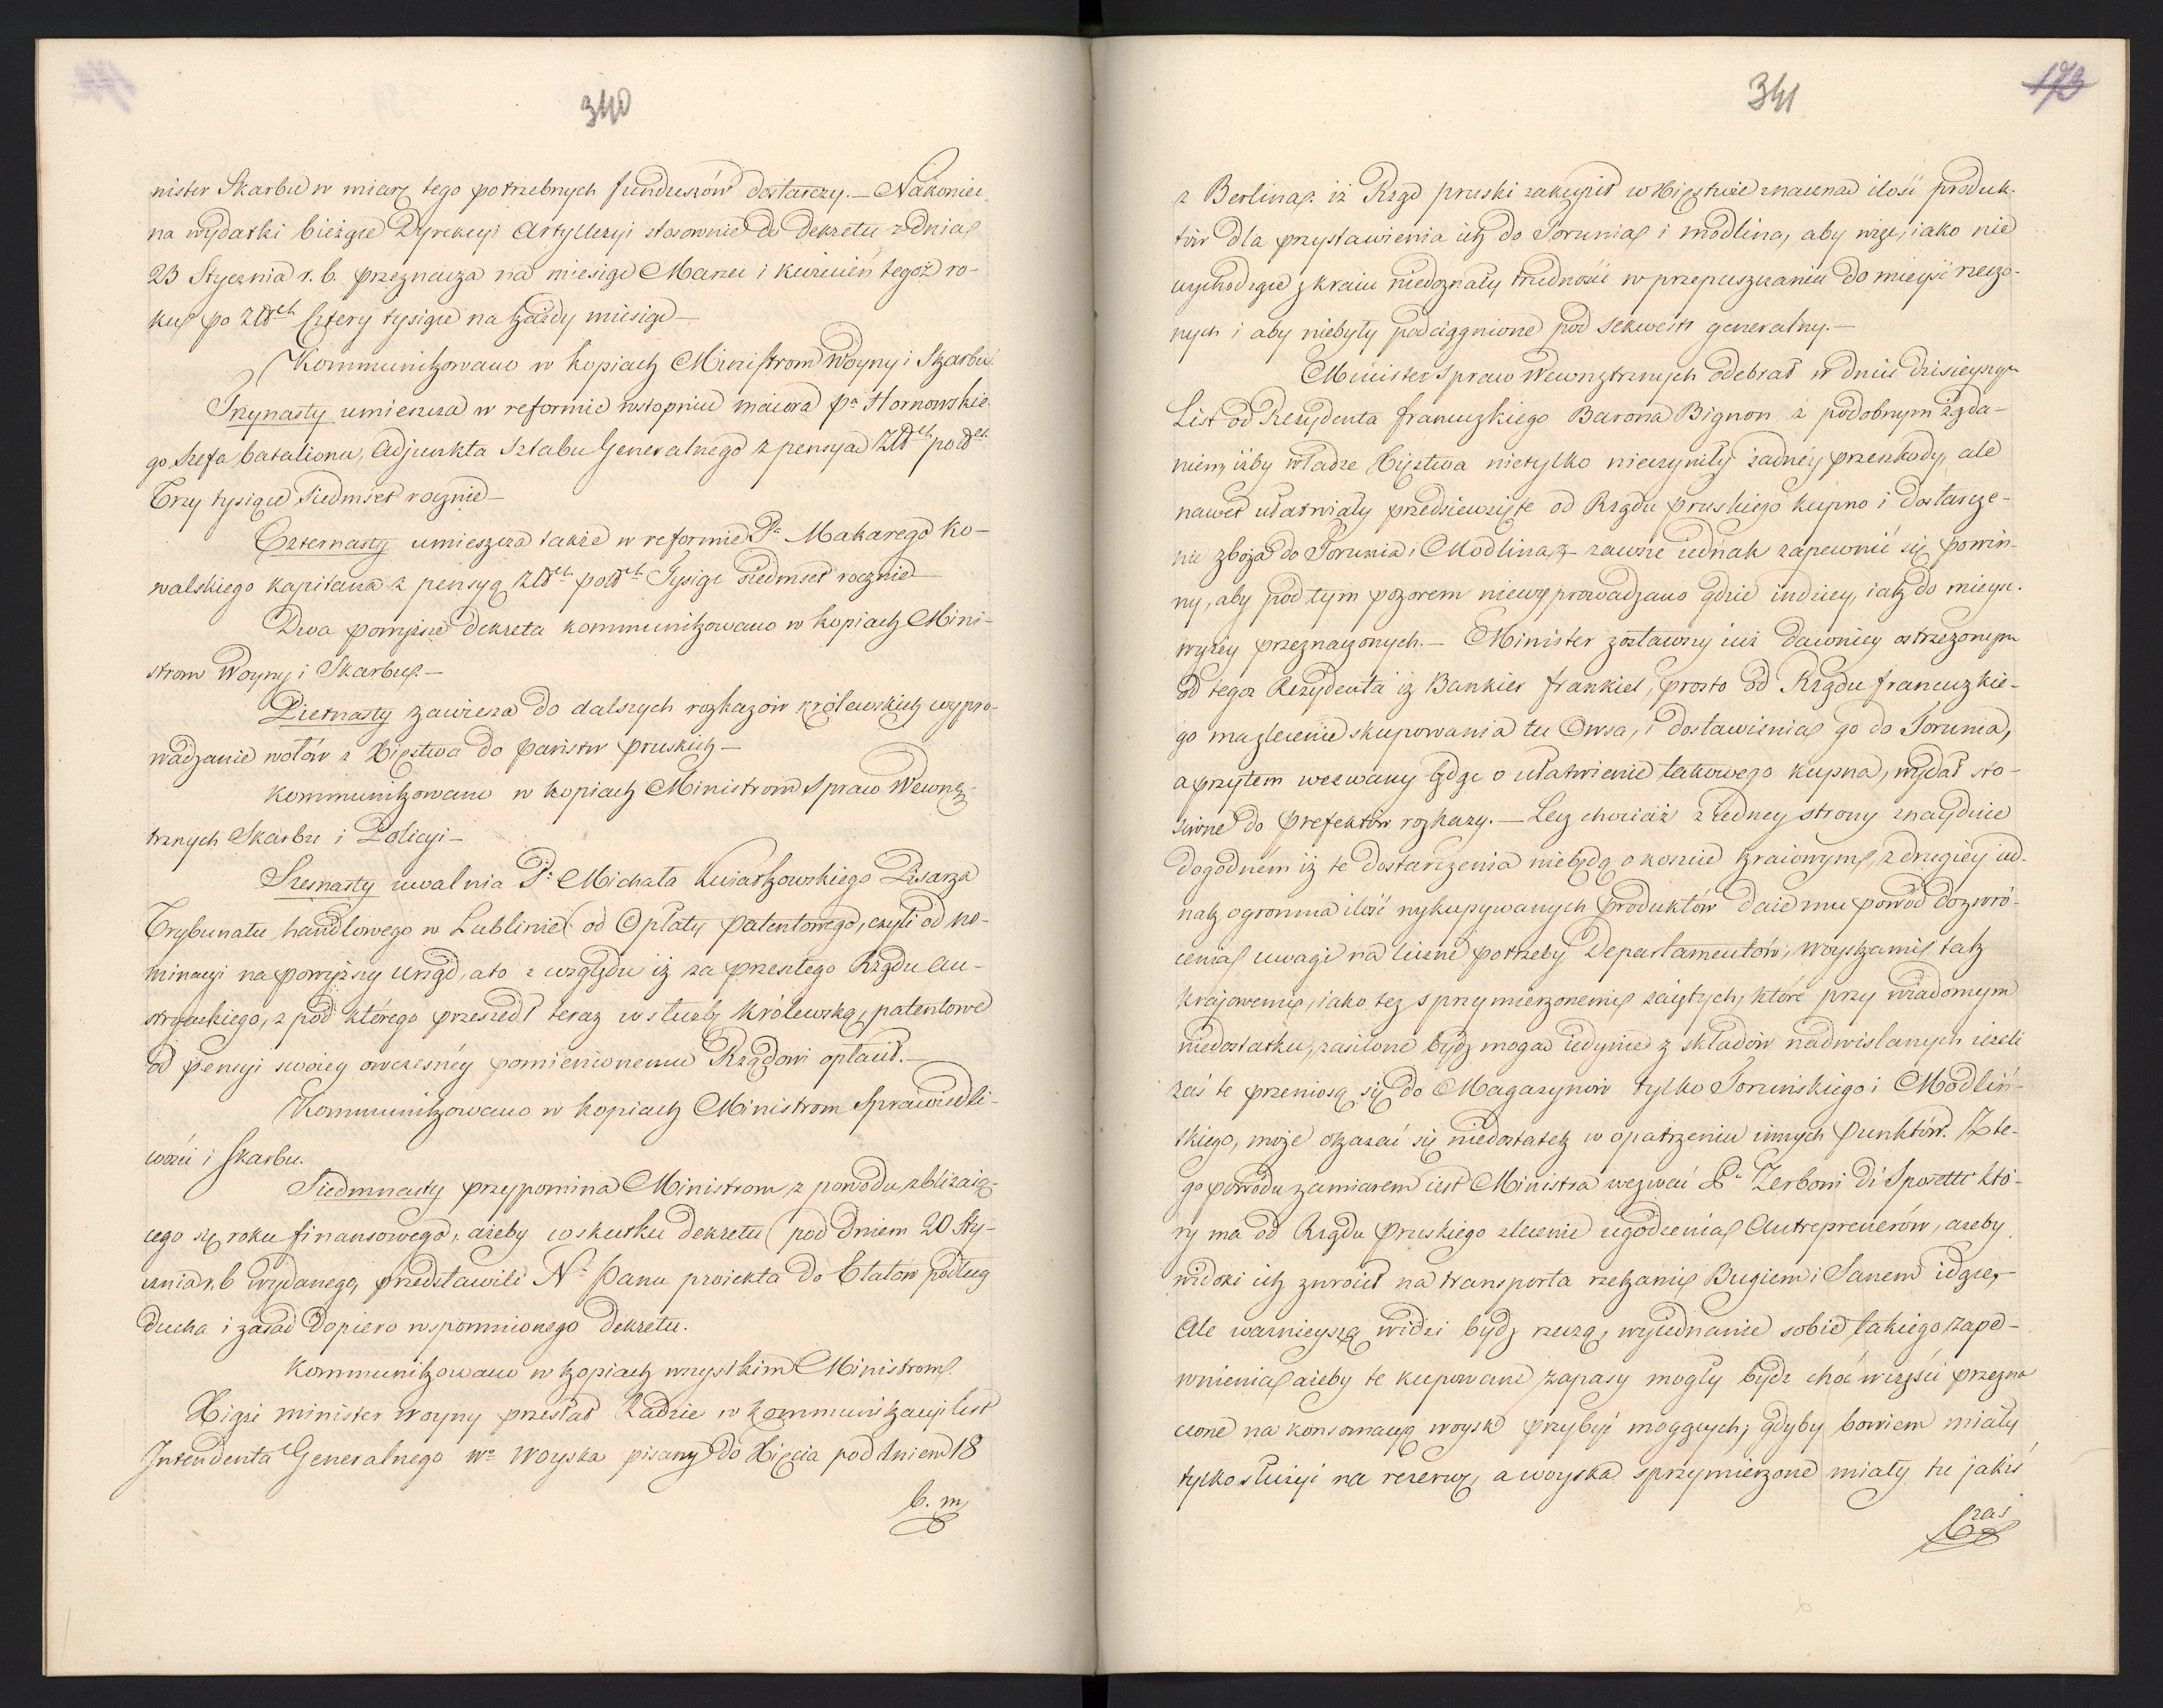 340
nister Skarbu w miarę tego potrzebnych funduszów dostarczy. — Nakoniec
na wydatki bieżące Dyrekcyi Artylleryi stosownie do Dekretu z dnia
23 Stycznia r. b. przeznacza na miesiąc Marzec i kwiecień tegoż ro-
ku po złᵗᶜʰ Cztery tysiące na każdy miesiąc —
Kommunikowano w kopiach Ministrom Woyny i Skarbu.
Trzynasty umieszcza w reformie w stopniu maiora Pᵃ Hornowskie-
go Szefa batalionu, Adjunkta Sztabu Generalnego z pensyą Złᵗᶜʰ polᶜʰ
Trzy tysiące Siedmset rocznie —
Czternasty umieszcza także w reformie Pᵃ Makarego Ko-
walskiego Kapitana z pensyą złᵗᶜʰ polᶜʰ Tysiąc siedmset rocznie —
Dwa powyższe dekreta kommunikowano w kopiach Mini-
strom Woyny i Skarbu. —
Pietnasty zawiesza do dalszych rozkazów królewskich wypro-
wadzanie wołów z Xięstwa do państw pruskich —
kommunikowano w kopiach Ministrom Spraw Wewnę-
trznych Skarbu i Policyi —
Szesnasty uwalnia Pᵃ Michała Kwiatkowskiego Pisarza
Trybunału handlowego w Lublinie od Opłaty patentowego, czyli od no-
minacyi na powyższy urząd, a to z względu iż za przeszłego Rządu Au-
stryackiego, z pod którego przeszedł teraz w służbę Królewską, patentowe
od pensyi swoiey owczesnéy pomienionemu Rządowi opłacił. —
Kommunikowano w kopiach Ministrom Sprawiedli-
wości i Skarbu.
Siedmnasty przypomina Ministrom z powodu zbliżaią-
cego się roku finansowego, ażeby w skutku dekretu pod dniem 20 Sty-
cznia r. b wydanego, przedstawili Nᵘ Panu proiekta do Etatów podług
ducha i zasad dopiero wspomnionego Dekretu.
Kommunikowano w kopiach wszystkim Ministrom.
Xiąże minister woyny przesłał Radzie w kommunikacyi list
Intendenta Generalnego Wᵒ Woyska pisany do Xięcia pod dniem 18
b. m.
341
173
z Berlina. iż Rząd pruski zakupił w Xięstwie znaczna ilość produk-
tów dla przystawienia ich do Torunia i modlina, aby więc, iako nie
wychodzące z kraiu niedoznały trudności w przepuszczaniu do mieysc rzeczo-
nych i aby niebyły podciągnione pod sekwestr generalny. —
Minister Spraw Wewnętrznych odebrał w dniu dzisieyszym
List od Rezydenta francuzkiego Barona Bignon z podobnym żąda-
niem, iżby władze Xięstwa nietylko nieczyniły żadnéy przeszkody, ale
nawet ułatwiały przedsiewzięte od Rządu pruskiego kupno i dostarcze-
nie zboża do Torunia i Modlina, — zawsze iednak zapewnić się powin-
ny, aby pod tym pozorem niewyprowadzano gdzie indziey, iak do mieysc
wyżéy przeznaczonych. — Minister zostawszy iuż dawniey ostrzeżonym
od tegoż Rezydenta iż Bankier frankiel, prosto od Rządu francuzkie-
go ma zlecenie skupowania tu Owsa, i dostawienia go do Torunia,
a przytem wezwany będąc o ułatwienie takowego kupna, wydał sto-
sowne do prefektów rozkazy. — Lecz chociaż z iedney strony znayduie
dogodném iż te dostarczenia niebędą o koszcie kraiowym, z drugiéy ied-
nak ogromna ilość wykupywanych produktów daie mu powód do zwró-
cenia uwagi na liczne potrzeby Departamentów, woyskami tak
krajowemi, iako tez sprzymierzonemi zaiętych, które przy wiadomym
niedostatku, zasilone bydź mogą iedynie z składów nadwislanych ieżeli
zaś te przeniosą się do Magazynów tylko Toruńskiego i Modliń-
skiego, może okazać się niedostatek w opatrzeniu innych punktów. Z te-
go powodu zamiarem iest Ministra wezwać Pᵃ Zerboni di Sposetti któ-
ry ma od Rządu pruskiego zlecenie ugodzenia Antreprenerów, ażeby
widoki ich zwrócił na transporta rzekami Bugiem i Sanem idące, —
Ale ważnieyszą widzi bydź rzeczą, wyiednanie sobie takiego zape-
wnienia ażeby te kupowane zapasy mogły bydz choć w części przezna
czone na konsomacyą woysk przybyć mogących; gdyby bowiem miały
tylko służyć na rezerwę, a woyska sprzymierzone miały tu jakiś
Czas